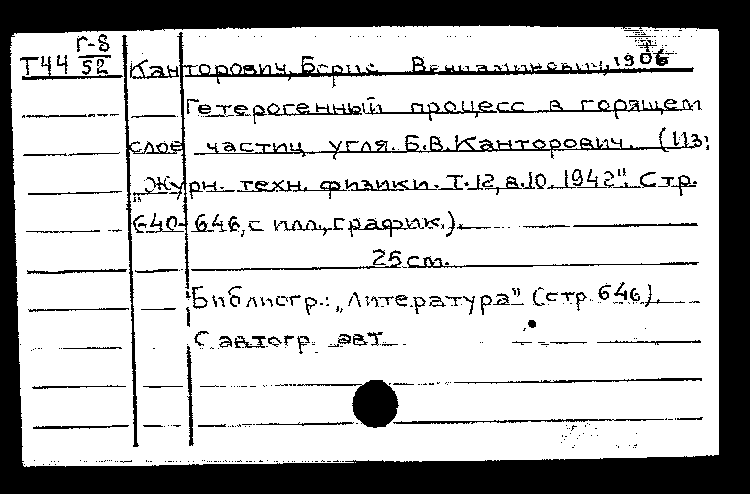 Г-8
Т44 52 Канторович, Борис Вениаминович, 1906
Гетерогенный процесс в горящем
слое частиц угля. Б.В.Канторович. (Из:
„Журн. техн. физики. Т.12, в.10. 1942". Стр.
640-646, с илл., график.).
25 cm.
Библиогр.: „Литература" (стр. 646).
С автогр. авт